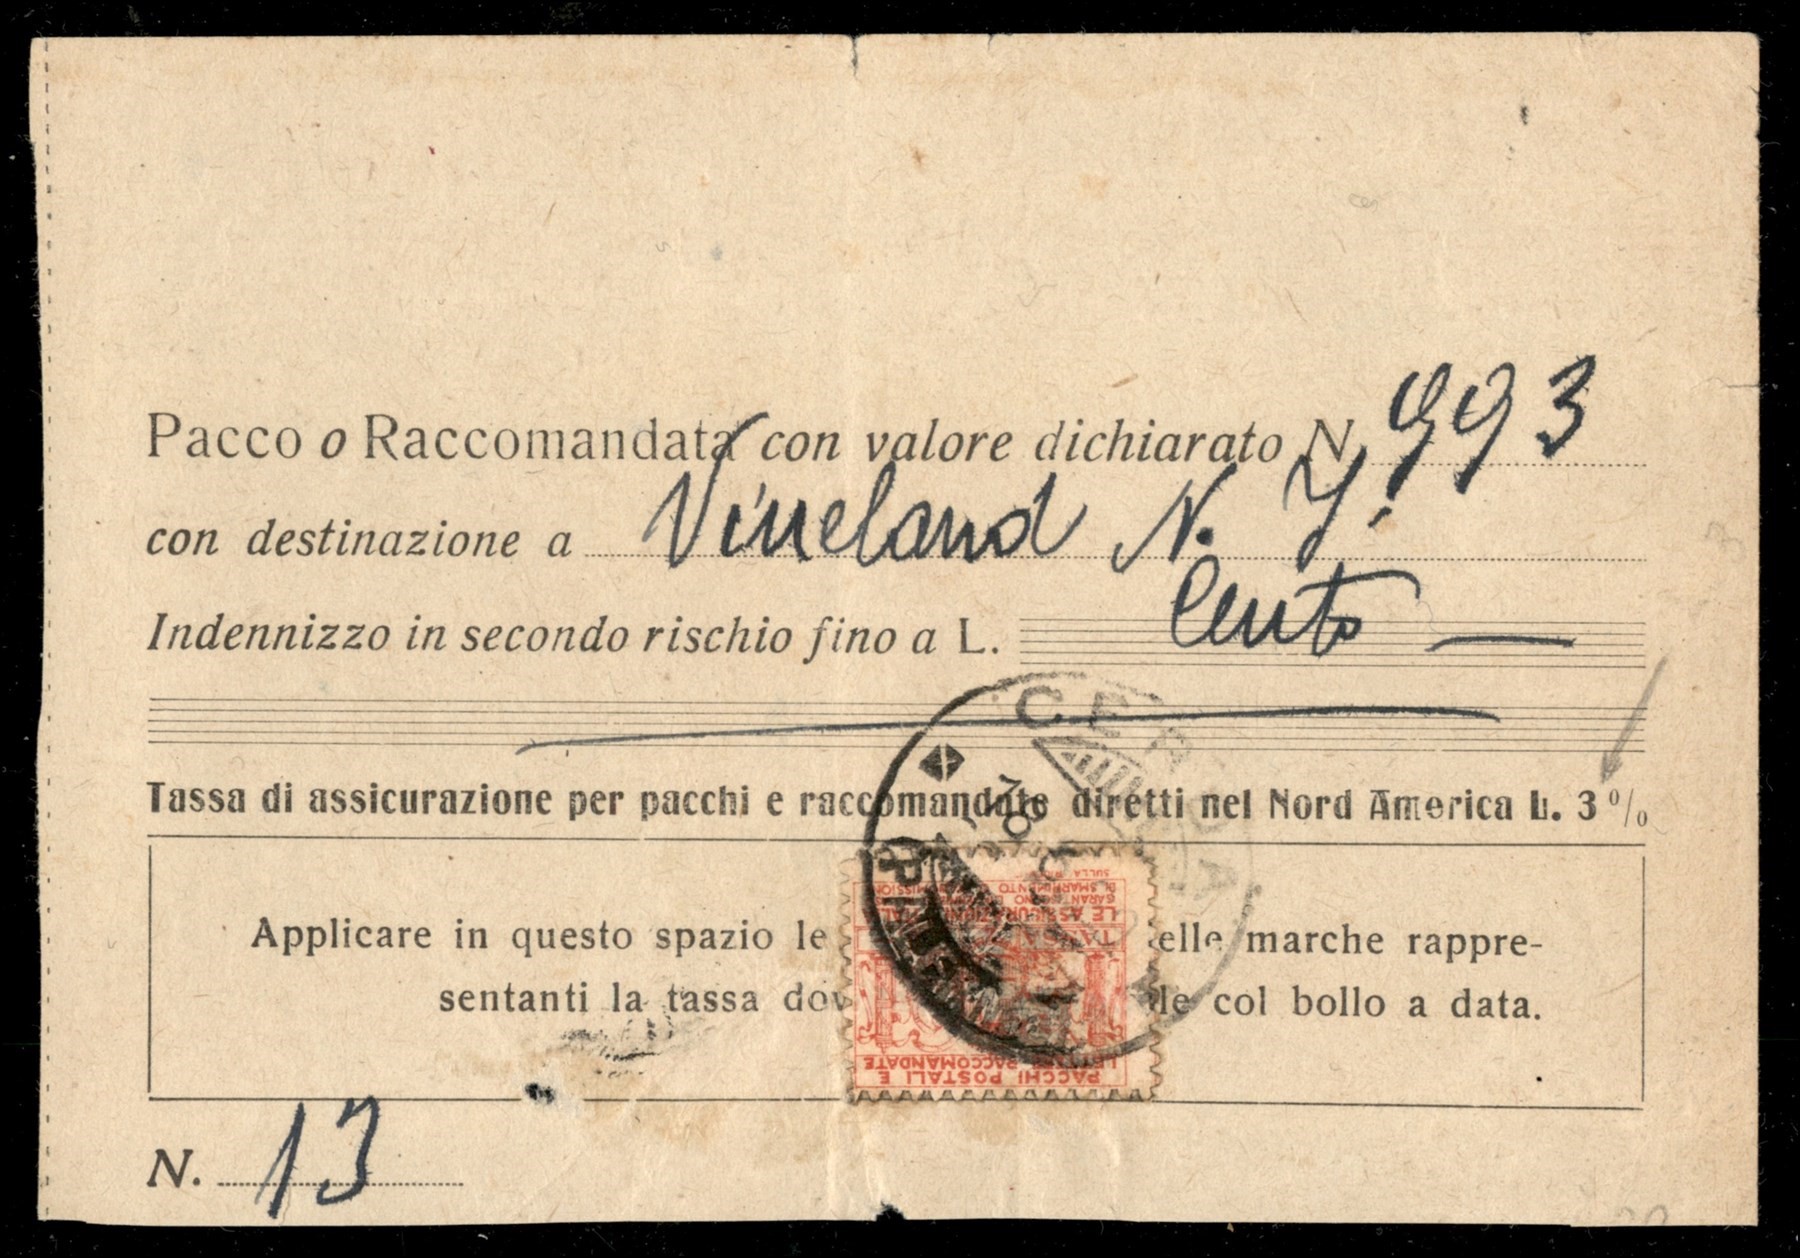 Pacco o Raccomandata con valore dichiarato N. 993
con destinazione a Vineland N. J.
Indennizzo in secondo rischio fino a L. Cento —
Tassa di assicurazione per pacchi e raccomandate diretti nel Nord America L. 3 %
Applicare in questo spazio le elle marche rappre-
sentanti la tassa dov le col bollo a data.
PACCHI POSTALI E
LETTERE RACCOMANDATE
TASSA
LE ASSICURAZIONI
N. 13